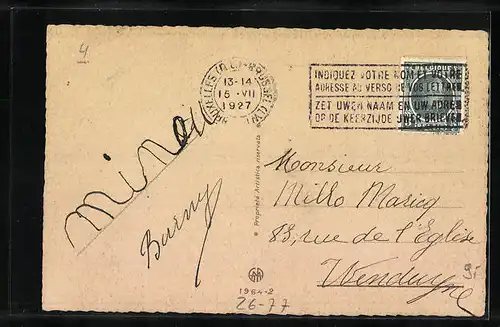 4
BRUXELLES
BRUSSEL
13-14
15 · VII
1927
INDIQUEZ VOTRE NOM ET VOTRE
ADRESSE AU VERSO DE VOS LETTRES
ZET UWEN NAAM EN UW ADRES
OP DE KEERZIJDE UWER BRIEVEN
BELGIQUE
Monsieur
Millo
83, rue de l'Eglise
Wenduyne
Proprietà Artistica riservata
1964-2
26-77